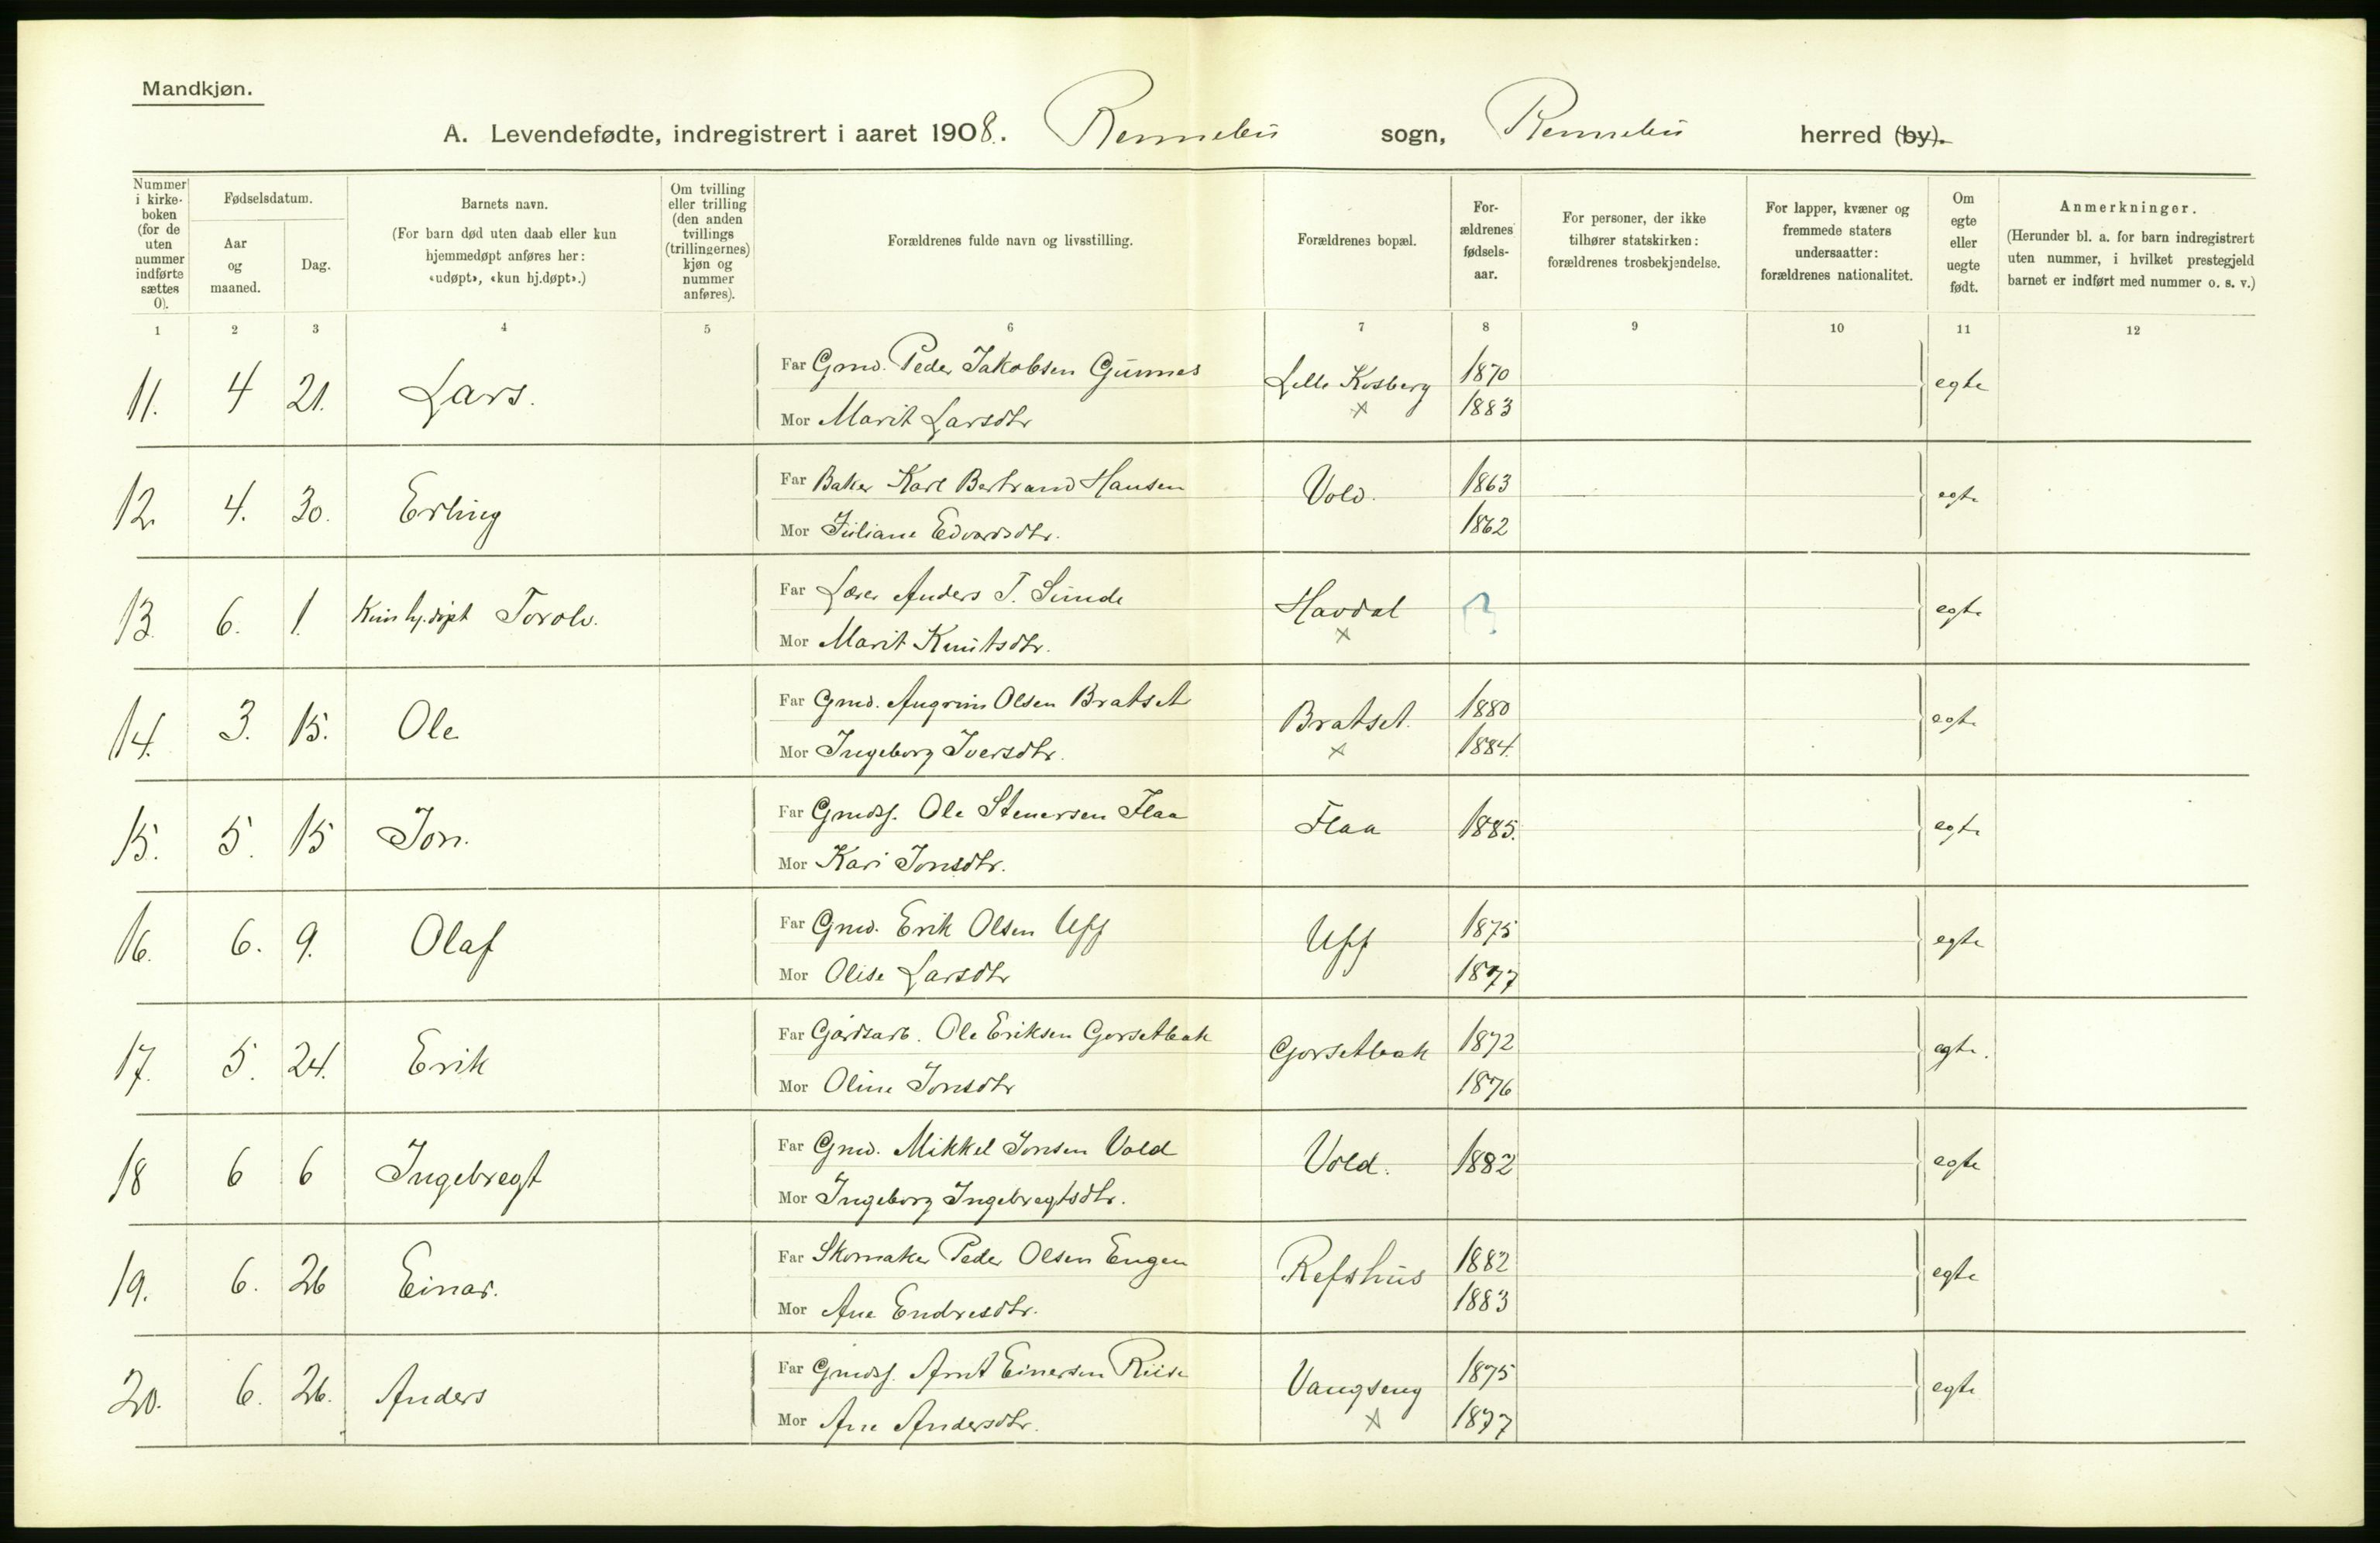 Mandkjøn.
A. Levendefødte, indregistrert i aaret 1908. Rennebu sogn, Rennebu herred (by).
Nummer i kirke-boken (for de uten nummer indførte sættes 0).
Fødselsdatum.
Aar og maaned.
Dag.
Barnets navn.
(For barn død uten daab eller kun hjemmedøpt anføres her: «udøpt», «kun hj.døpt».)
Om tvilling eller trilling (den anden tvillings (trillingernes) kjøn og nummer anføres).
Forældrenes fulde navn og livsstilling.
Forældrenes bopæl.
For-ældrenes fødsels-aar.
For personer, der ikke tilhører statskirken: forældrenes trosbekjendelse.
For lapper, kvæner og fremmede staters undersaatter: forældrenes nationalitet.
Om egte eller uegte født.
Anmerkninger.
(Herunder bl. a. for barn indregistrert uten nummer, i hvilket prestegjeld barnet er indført med nummer o. s. v.)
1 2 3 4 5 6 7 8 9 10 11 12
11. 4 21. Lars. Far Gmd. Peder Jakobsen Gunnes Lille Kosberg 1870 egte
Mor Marit Larsdtr x 1883
12. 4. 30. Erling Far Baker Karl Bertrand Hansen Vold. 1863 egte
Mor Juliane Edvardsdtr. 1862
13. 6. 1. Kun hj.døpt Torolv. Far Lærer Anders T. Sunde Havdal ? egte
Mor Marit Knutsdtr. x
14. 3. 15. Ole Far Gmd. Angrim Olsen Bratset Bratset. 1880 egte
Mor Ingeborg Iversdtr. x 1884.
15. 5. 15 Jon. Far Gmdsj. Ole Stenersen Flaa Flaa 1885. egte
Mor Kari Jonsdtr.
16. 6. 9. Olaf Far Gmd. Erik Olsen Uff Uff 1875 egte
Mor Olise Larsdtr 1877
17. 5. 24. Erik Far Gårdsarb. Ole Eriksen Gorsetbak Gorsetbak 1872 egte.
Mor Oline Jonsdtr 1876
18 6 6 Ingebregt Far Gmd. Mikkel Jonsen Vold Vold. 1882 egte
Mor Ingeborg Ingebregtsdtr.
19. 6. 26 Einar. Far Skomaker Peder Olsen Engen Refshus 1882 egte
Mor Ane Endresdtr. 1883
20. 6. 26. Anders Far Gmdsj. Arnt Einersen Riise Vangseng 1875 egte
Mor Ane Andersdtr. x 1877